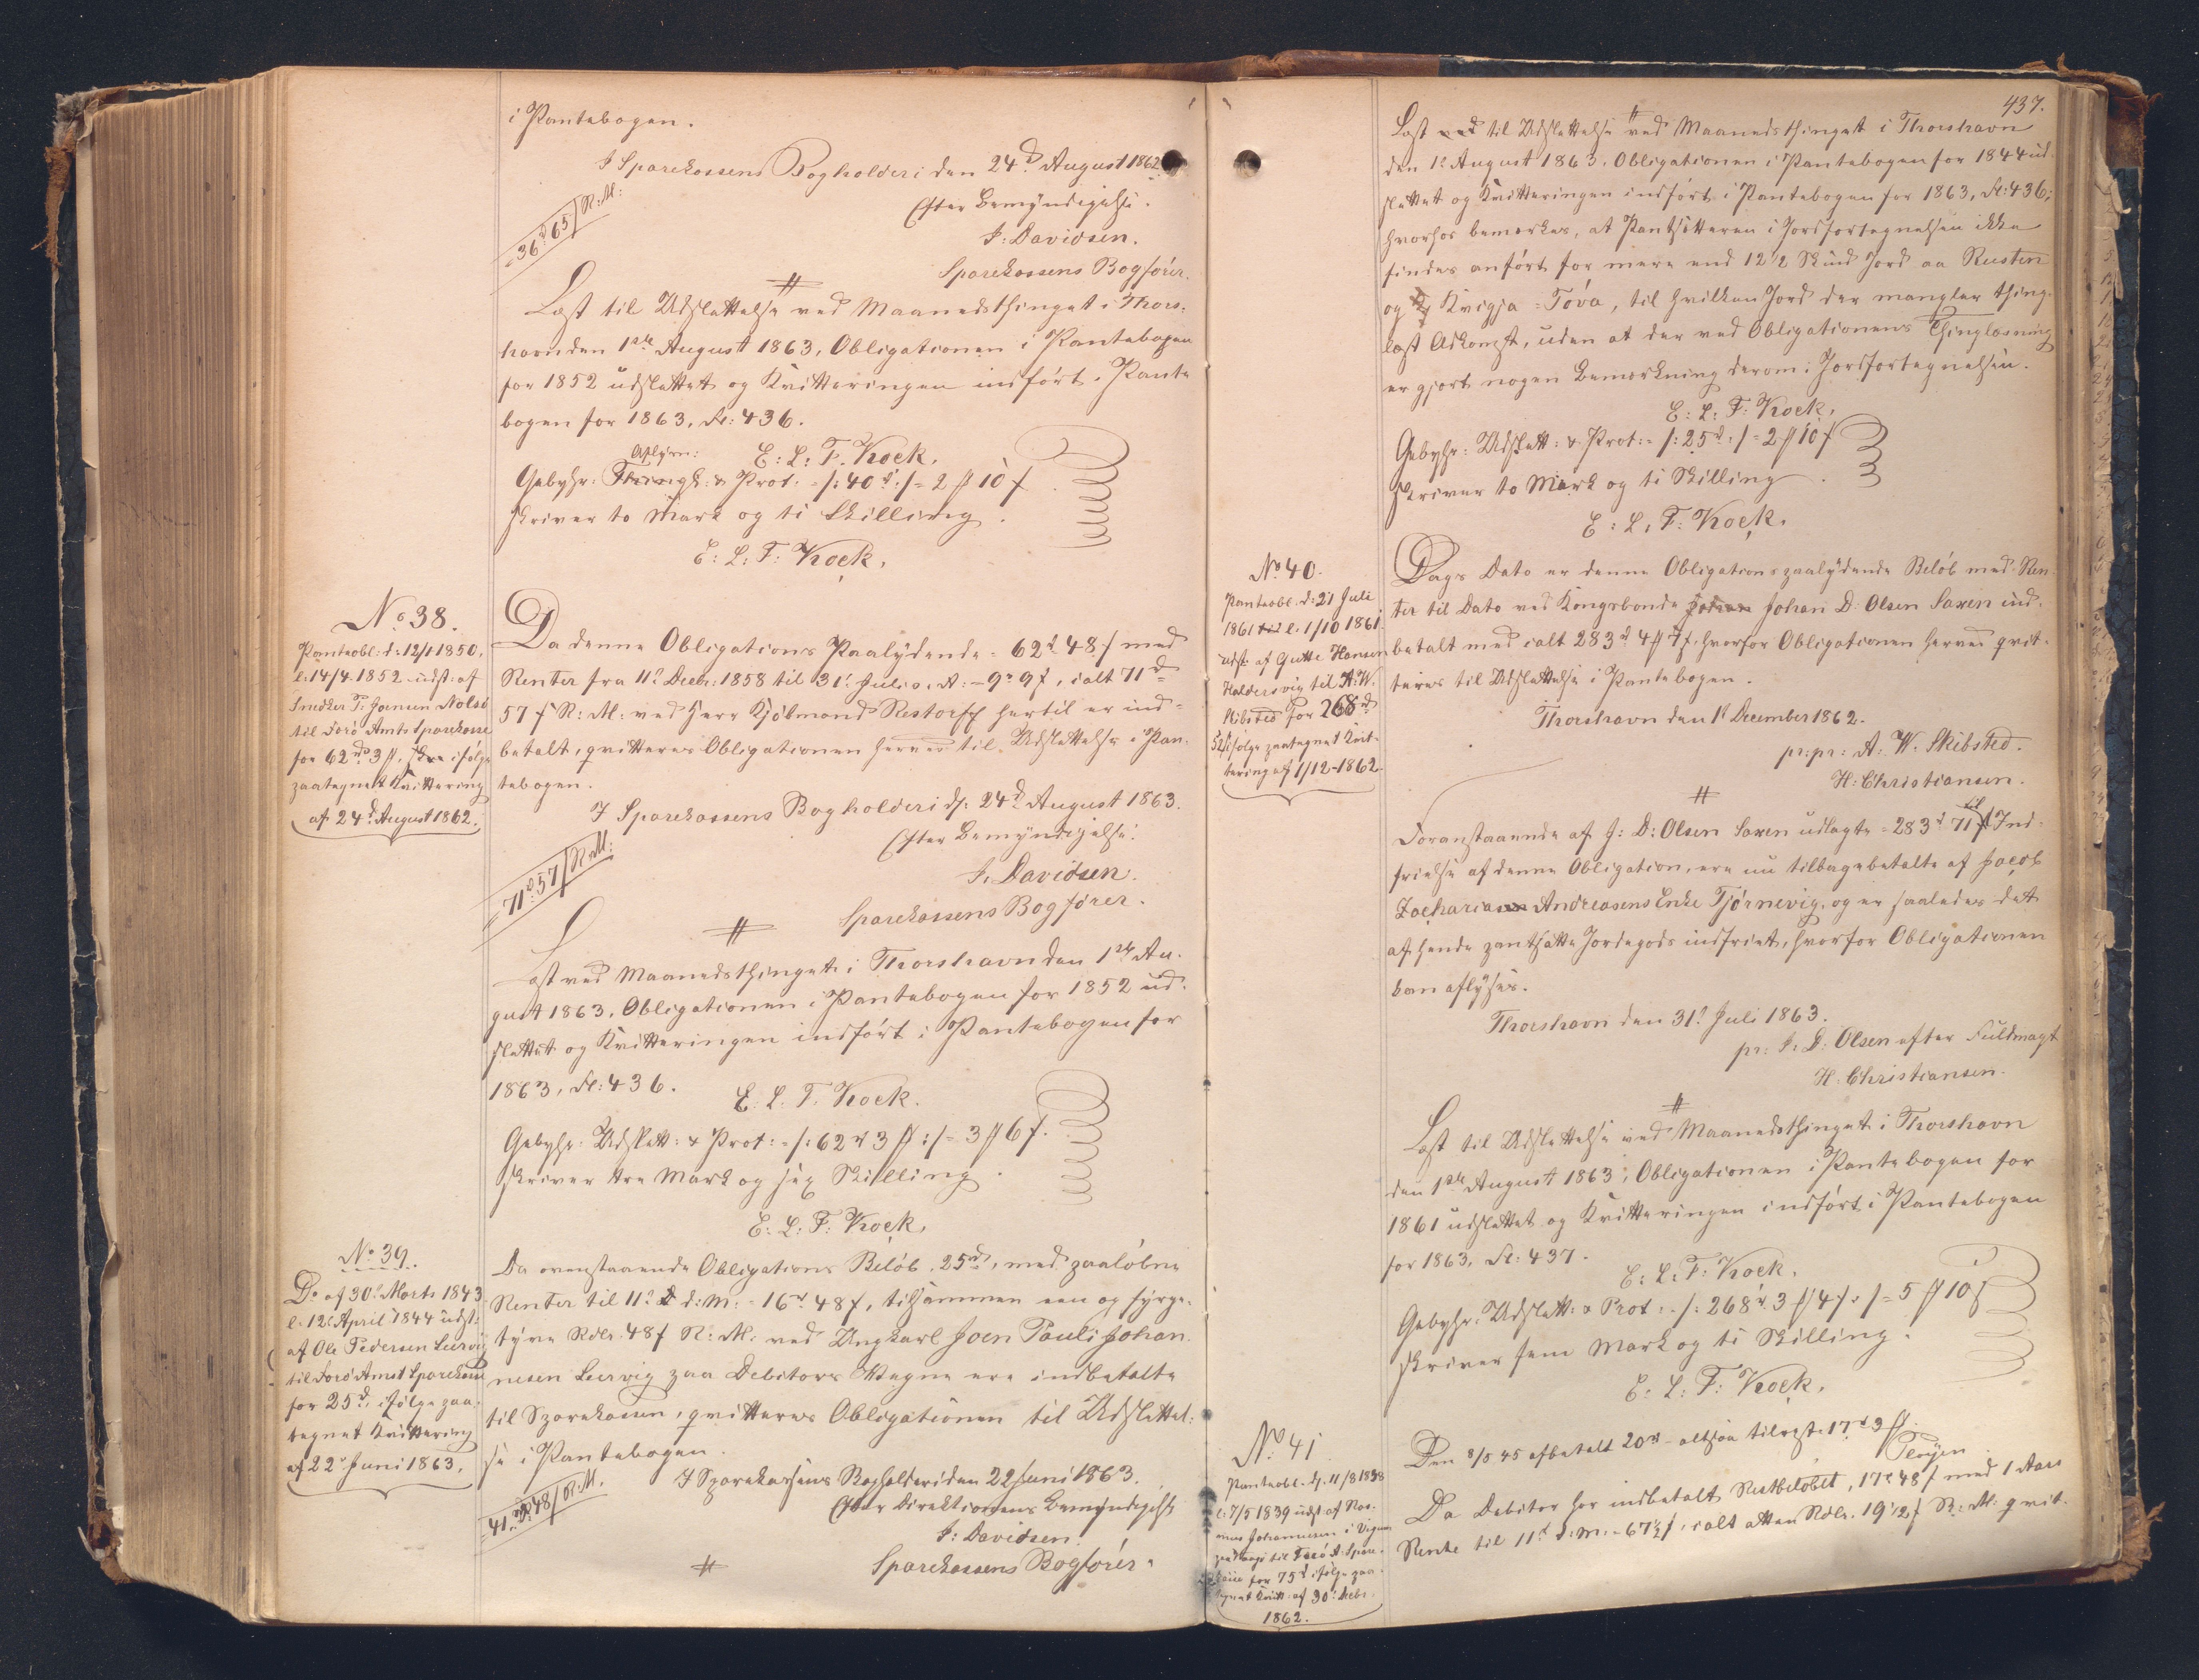 i Pantebogen.
I Sparekassens Bogholderi den 24d August 1862.
Efter Bemyndigelse.
J: Davidsen.
Sparekassens Bogfører.
=36d 65/R:M:
#
Læst til Udslettelse ved Maanedsthinget i Thors-
havn den 1ste August 1863, Obligationen i Pantebogen
for 1852 udslettet og Kvitteringen indført i Pante
bogen for 1863, Fl: 436.
E: L: F. Kock.
Aflysn:
Gebyhr: Thingl: & Prot: -/:40d:/= 2 # 10 f
skriver to Mark og ti Skilling.
E: L: F: Kock.
No 38.
Panteobl: d: 12/1 1850,
l: 14/4 1852 udst: af
Snedker P: Joensen Nolsø
til Færø Amts Sparekasse
for 62rd 3 #, ifølge
paategnet Kvittering
af 24d August 1862.
Da denne Obligations Paalydende = 62d 48 f med
Renter fra 11d Decbr: 1858 til 31 Juli s. A: - 9d 9f, ialt 71d
57 f R: M: ved Herr Kjøbmand Restorff hertil er ind-
betalt, qvitteres Obligationen herved til Udslettelse i Pan-
tebogen.
I Sparekassens Bogholderi d: 24d August 1863.
Efter Bemyndigelse.
J. Davidsen.
Sparekassens Bogfører.
=71d 57/R:M:
#
Læst ved Maanedsthinget i Thorshavn den 1ste Au-
gust 1863, Obligationen i Pantebogen for 1852 ud-
slettet og Kvitteringen indført i Pantebogen for
1863, Fl: 436.
E. L. F. Kock.
Gebyhr: Udslett: & Prot: -/:62d 3 #:/= 3 # 6 f.
skriver tre Mark og sex Skilling.
E: L: F: Kock.
No 39.
Do af 30 Marts 1843
l: 12 April 1844 udst:
af Ole Pedersen Leervig
til Færø Amts Sparekasse
for 25d, ifølge paa-
tegnet Kvittering
af 22 Juni 1863.
Da ovenstaaende Obligations Beløb, 25rd, med paaløbne
Renter til 11 d: M: - 16d 48f, tilsammen een og fyrge-
tyve Rdlr. 48f R: M: ved Ungkarl Joen Pauli Johan
nesen Leervig paa Debitors Vegne ere indbetalte
til Sparekassen, qvitteres Obligationen til Udslettel-
se i Pantebogen.
I Sparekassens Bogholderi den 22 Juni 1863.
Efter Direktionens Bemyndigelse
J: Davidsen.
Sparekassens Bogfører.
=41d 48/R.M.
#
437.
#
Læst til Udslettelse ved Maanedsthinget i Thorshavn
den 1 August 1863. Obligationen i Pantebogen for 1844 ud-
slettet og Kvitteringen indført i Pantebogen for 1863, Fl: 436;
hvorhos bemærkes, at Pantsætteren i Jordfortegnelsen ikke
findes anført for mere end 12 1/2 Skind Jord aa Rusten
og Kvigja-Tova, til hvilken Jord der mangler thing-
læst Adkomst, uden at der ved Obligationens Thinglæsning
er gjort nogen Bemærkning derom i Jordfortegnelsen.
E: L: F: Kock.
Gebyhr: Udslett: & Prot: -/:25d:/= 2 # 10 f
skriver to Mark og ti Skilling.
E: L: F: Kock.
No 40.
Panteobl. d: 21 Juli
1861 l: 1/10 1861
udst: af Gutte Hansen
Haldersvig til A: W.
Skibsted for 268rd
ifølge paategnet Kvit-
tering af 1/12-1862.
Dags Dato er denne Obligations paalydende Beløb med Ren
ter til Dato ved Kongsbonde Johan D: Olsen Saxen ind-
betalt med ialt 283d 4 # 7 f, hvorfor Obligationen herved qvit-
teres til Udslettelse i Pantebogen.
Thorshavn den 1 December 1862.
pr: pr: A: W. Skibsted.
H: Christiansen.
#
Foranstaaende af J: D: Olsen Saxen udlagte = 283d 71 f til Ind-
frielse af denne Obligation, ere nu tilbagebetalte af Jacob
Zacharias Andreasens Enke Tjørnevig, og er saaledes det
af hende pantsatte Jordegods indfriet, hvorfor Obligationen
kan aflyses.
Thorshavn den 31 Juli 1863.
pr: J: D: Olsen efter Fuldmagt
H. Christiansen.
#
Læst til Udslettelse ved Maanedsthinget i Thorshavn
den 1ste August 1863, Obligationen i Pantebogen for
1861 udslettet og Kvitteringen indført i Pantebogen
for 1863, Fl: 437.
E: L: F: Kock.
Gebyhr: Udslett: & Prot: -/:268d 3 # 4 f:/= 5 # 10 f
skriver fem Mark og ti Skilling.
E: L: F: Kock.
No 41
Panteobl. d: 11/8 1838
l: 7/5 1839 udst: af Ras-
mus Johannesen i Vigum
til Færø A: Spare-
kasse for 75d ifølge paa-
tegnet Kvitt: af 30 Decbr.
1862.
Den 8/5 45 afbetalt 20rd - altsaa tilrest 17d 3 #.
Pløyen
Da Debitor har indbetalt Restbeløbet, 17d 48 f med 1 Aars
Rente til 11 d: M: - 67 1/2 f, ialt atten Rdlr. 19 1/2 f R: M: qvit-